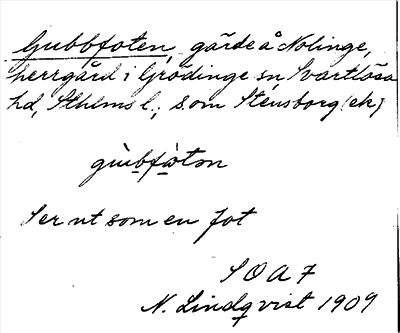 Gubbfoten, gärde å Nolinge,
herrgård i Grödinge sn Svartlösa
hd, Sthlms l.; som Stensborg (ek)
gùbfòtən
Ser ut som en fot
S O A 7
N. Lindqvist 1909